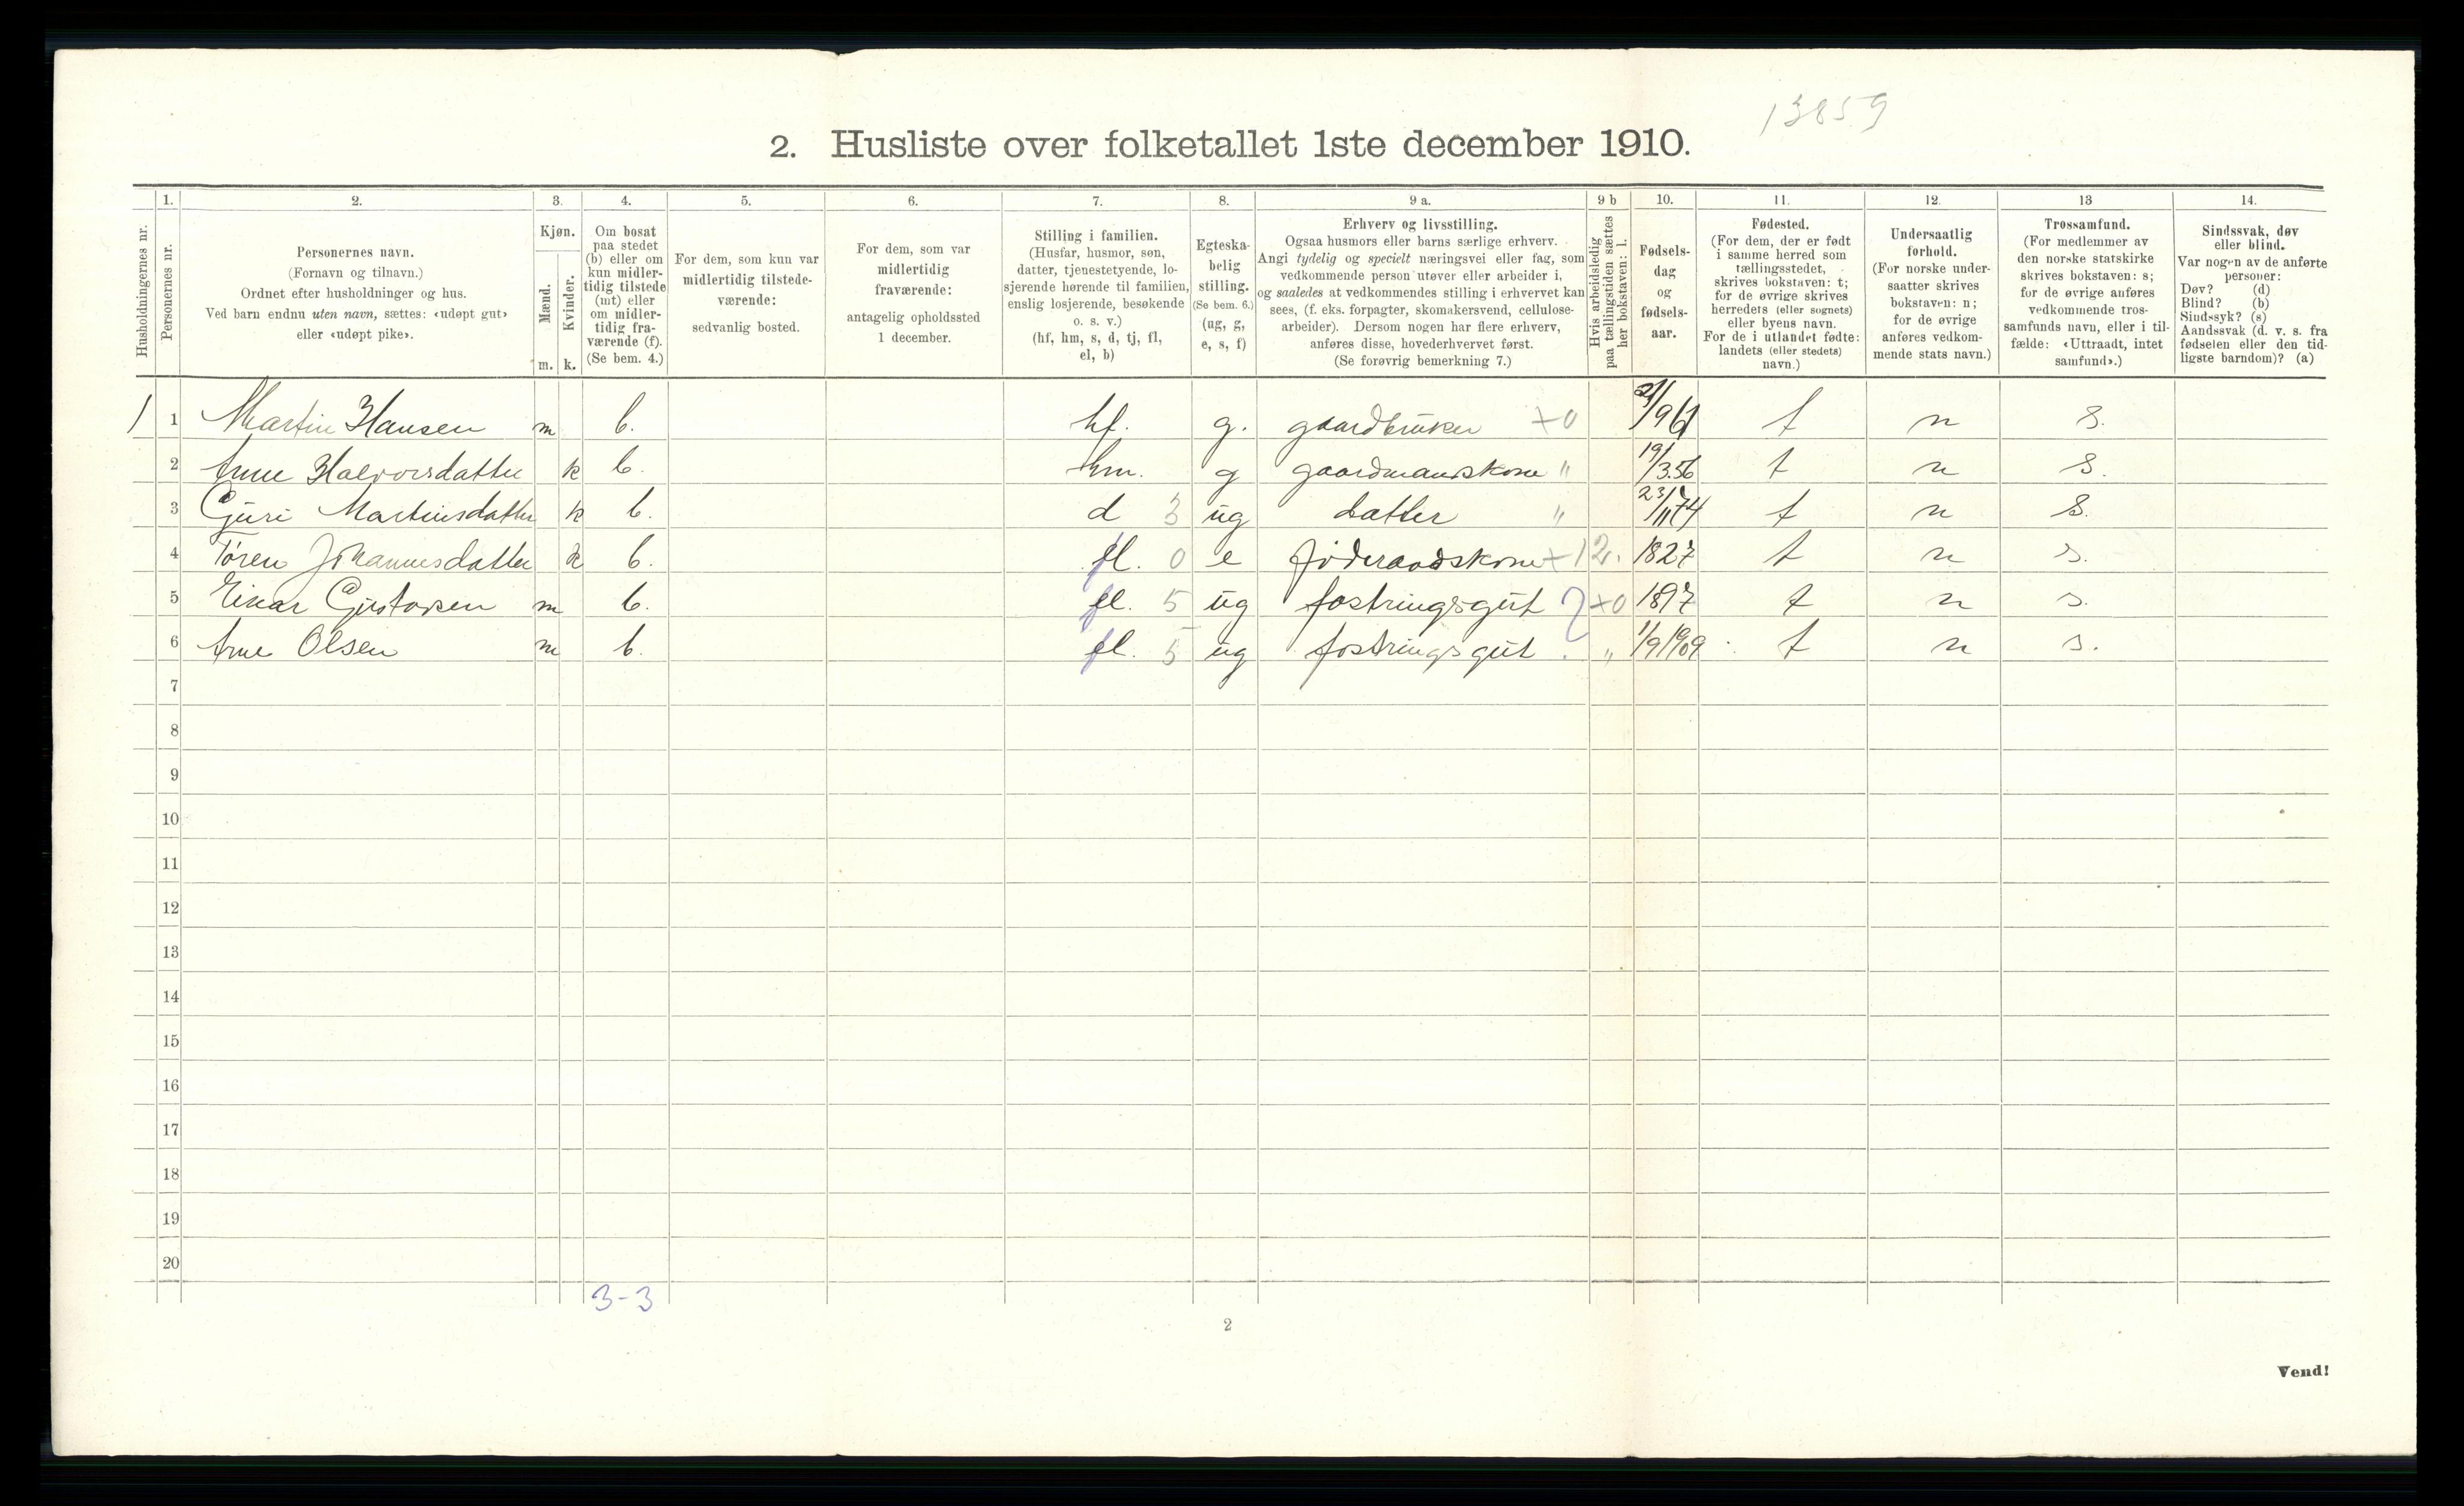 13859
2. Husliste over folketallet 1ste december 1910.
Husholdningernes nr.
1.
Personernes nr.
2.
Personernes navn.
(Fornavn og tilnavn.)
Ordnet efter husholdninger og hus.
Ved barn endnu uten navn, sættes: «udøpt gut»
eller «udøpt pike».
3.
Kjøn.
Mænd.
Kvinder.
m. k.
4.
Om bosat
paa stedet
(b) eller om
kun midler-
tidig tilstede
(mt) eller
om midler-
tidig fra-
værende (f).
(Se bem. 4.)
5.
For dem, som kun var
midlertidig tilstede-
værende:
sedvanlig bosted.
6.
For dem, som var
midlertidig
fraværende:
antagelig opholdssted
1 december.
7.
Stilling i familien.
(Husfar, husmor, søn,
datter, tjenestetyende, lo-
sjerende hørende til familien,
enslig losjerende, besøkende
o. s. v.)
(hf, hm, s, d, tj, fl,
el, b)
8.
Egteska-
belig
stilling.
(Se bem. 6.)
(ug, g,
e, s, f)
9 a.
Erhverv og livsstilling.
Ogsaa husmors eller barns særlige erhverv.
Angi tydelig og specielt næringsvei eller fag, som
vedkommende person utøver eller arbeider i,
og saaledes at vedkommendes stilling i erhvervet kan
sees, (f. eks. forpagter, skomakersvend, cellulose-
arbeider). Dersom nogen har flere erhverv,
anføres disse, hovederhvervet først.
(Se forøvrig bemerkning 7.)
9 b
Hvis arbeidsledig
paa tællingstiden sættes
her bokstaven: l.
10.
Fødsels-
dag
og
fødsels-
aar.
11.
Fødested.
(For dem, der er født
i samme herred som
tællingsstedet,
skrives bokstaven: t;
for de øvrige skrives
herredets (eller sognets)
eller byens navn.
For de i utlandet fødte:
landets (eller stedets)
navn.)
12.
Undersaatlig
forhold.
(For norske under-
saatter skrives
bokstaven: n;
for de øvrige
anføres vedkom-
mende stats navn.)
13
Trossamfund.
(For medlemmer av
den norske statskirke
skrives bokstaven: s;
for de øvrige anføres
vedkommende tros-
samfunds navn, eller i til-
fælde: «Uttraadt, intet
samfund».)
14.
Sindssvak, døv
eller blind.
Var nogen av de anførte
personer:
Døv? (d)
Blind? (b)
Sindssyk? (s)
Aandssvak (d. v. s. fra
fødselen eller den tid-
ligste barndom)? (a)
1 1 Martin Hansen m b. hf. g. gaardbruker +0 21/9 61 t n s.
2 Anne Halvorsdatter k b. hm. g gaardmandskone " 19/3.56 t n s.
3 Guri Martinsdatter k b. d 3 ug datter " 23/11 74 t n s.
4 Tøren Johannesdatter k b. fl. 0 e føderaadskone +12. 1827 t n s.
5 Einar Gustavsen m b. fl. 5 ug fostringsgut +0 1897 t n s.
6 Arne Olsen m b. fl. 5 ug fostringsgut. " 1/9 1909 t n s.
7
8
9
10
11
12
13
14
15
16
17
18
19
20
3-3
2
Vend!